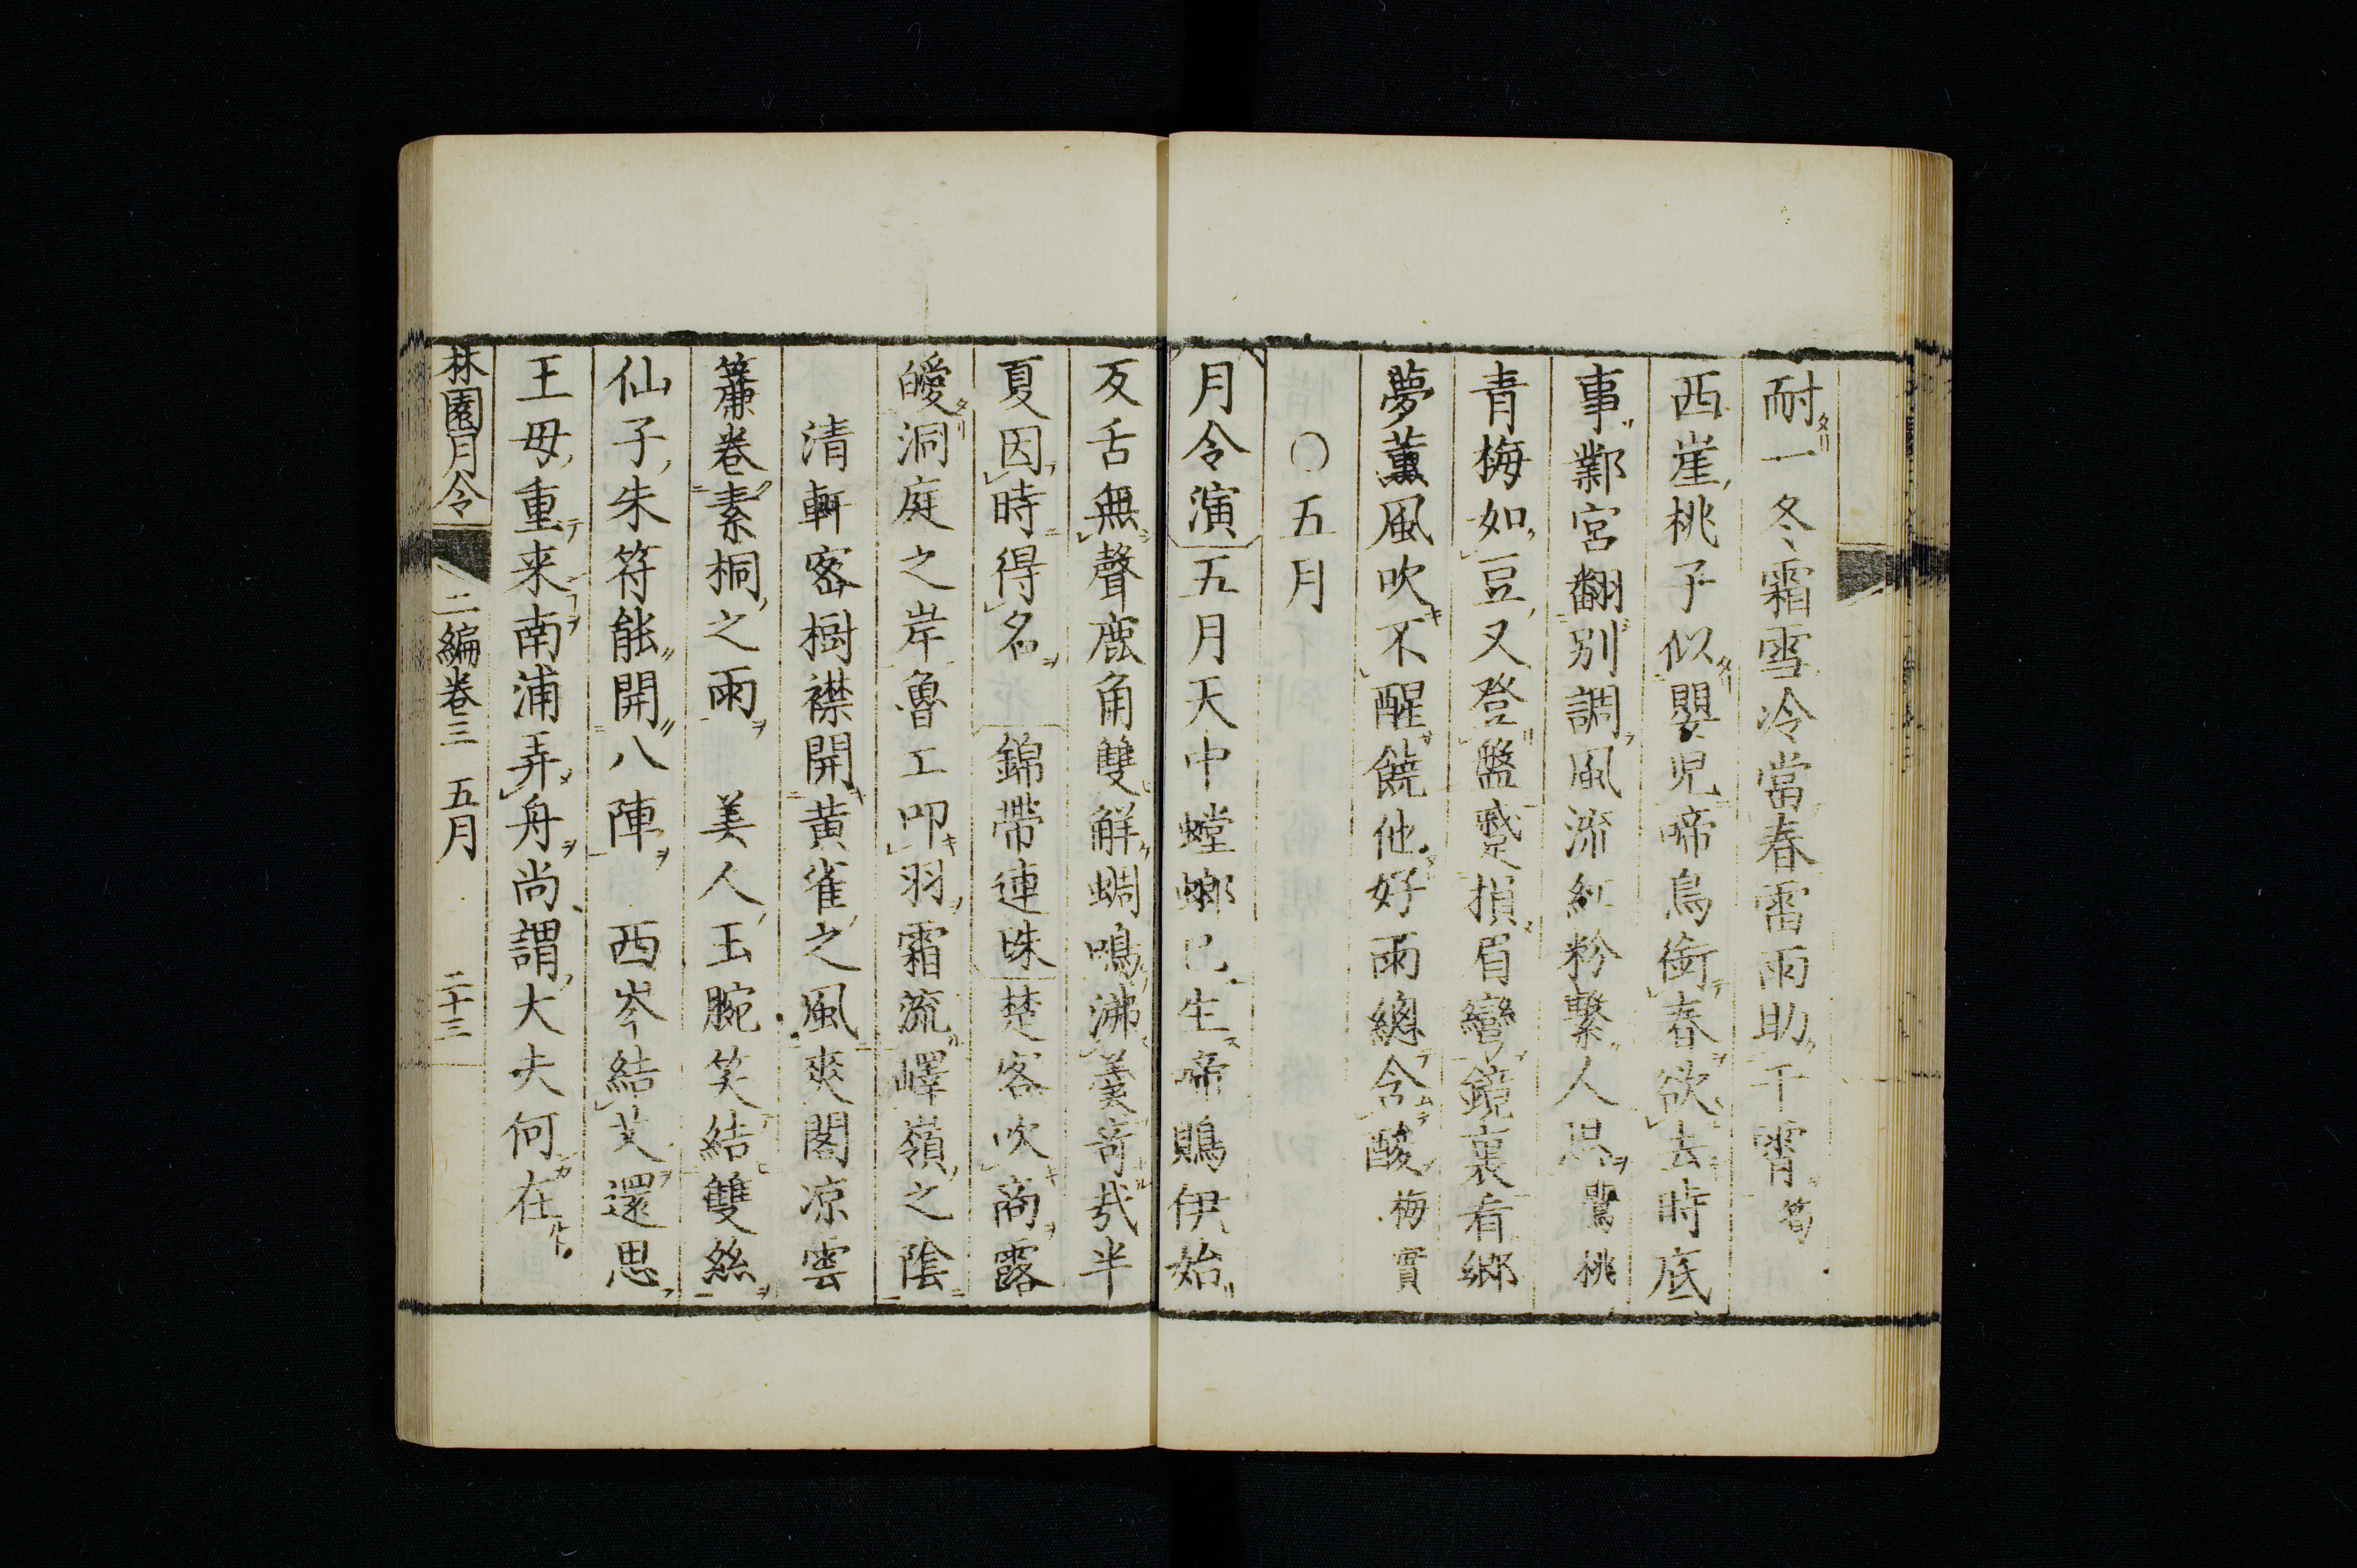 耐一冬霜雪冷當春雷雨助干霄筍
西崖桃子似嬰児啼鳥銜春欲去時底
事鄴宮翻別調風流紅粉繋人思鶯桃
青梅如豆又登盤蹙損眉彎鏡裏看郷
夢薫風吹不醒饒他好雨總含酸梅實
〇五月
月令演五月天中螳螂已生啼鵙伊始
反舌無聲鹿角雙觧蜩鳴沸羹奇哉半
夏因時得名 錦帶連珠楚客吹商露
皧洞庭之岸魯工叩羽霜流嶧嶺之陰
清軒客樹襟開黄雀之風爽閣凉雲
簾巻素桐之雨 美人玉腕笑結雙絲
仙子朱符能開八陣 西岑結艾還思
王母重来南浦弄舟尚謂大夫何在
林園月令 二編巻三 五月 二十三